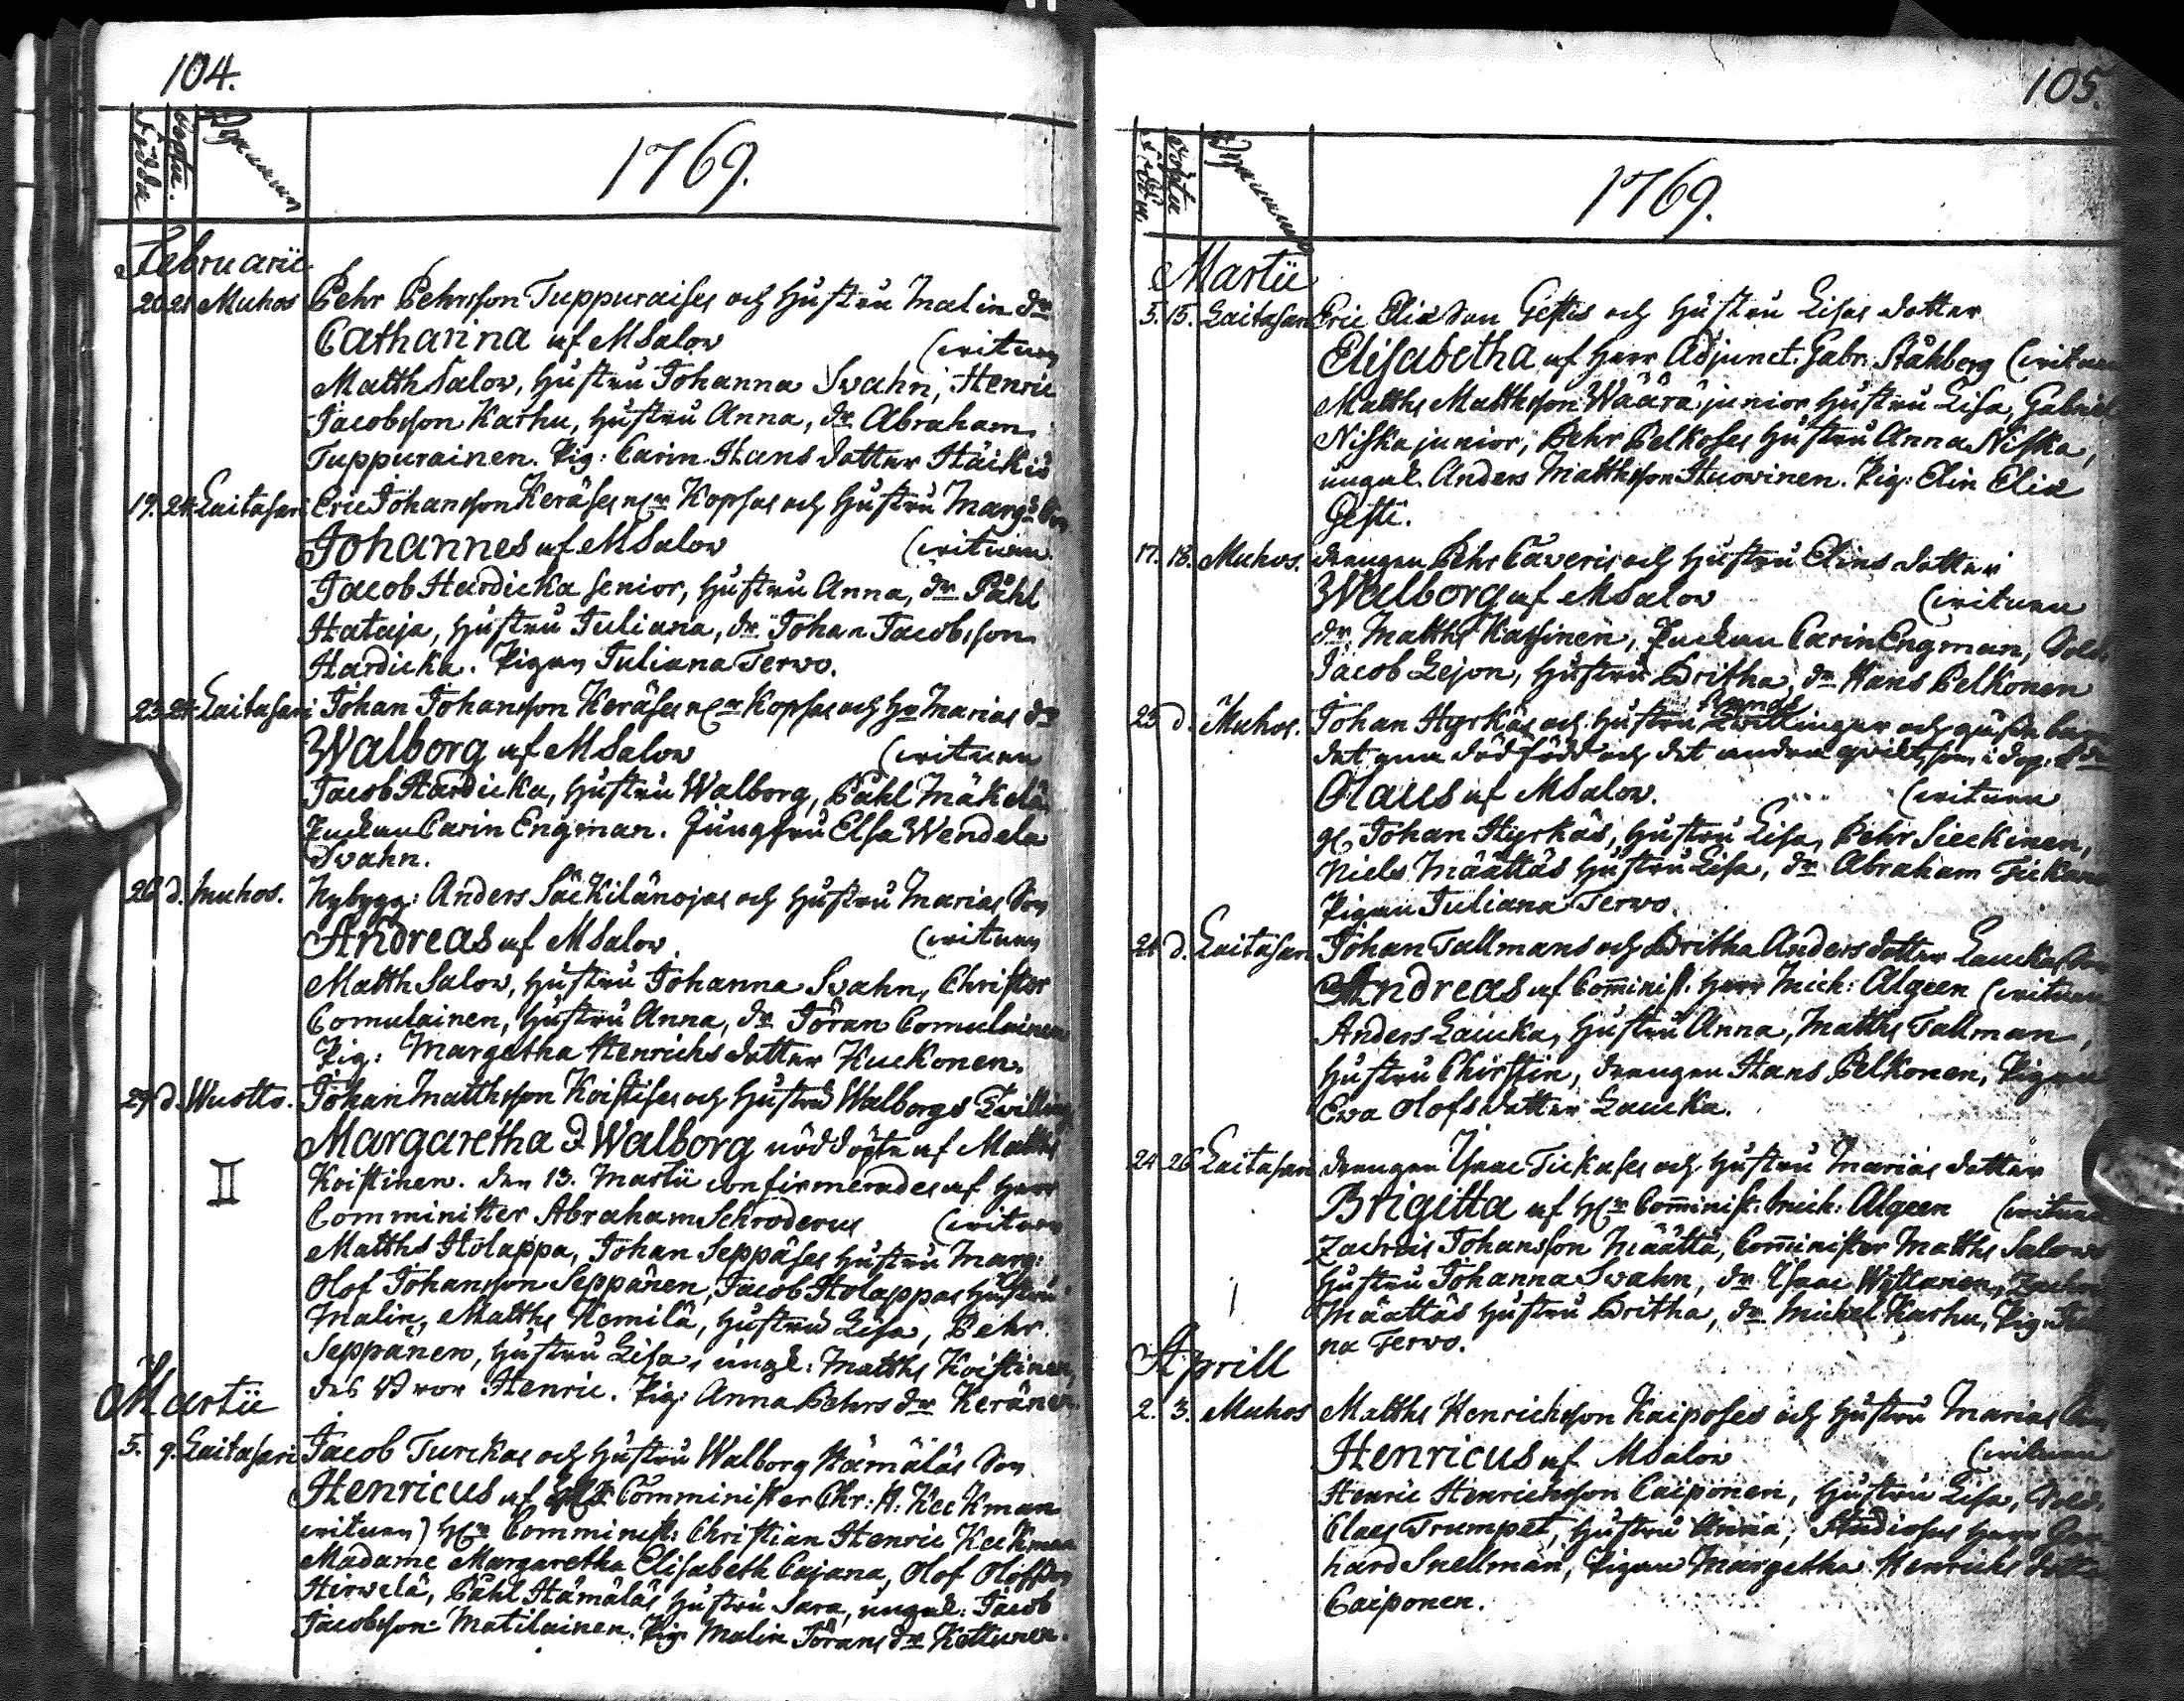 104.
Födda
Döpta.
Byarnam
1769.
Februarii
20. 21 Muhos Pehr Pehrsson Tuppuraises och Hustru Malin dr
Catharina af MSalov (vitnen
Matth Salov, Hustru Johanna Svahn, Henric
Jacobsson Karhu, Hustru Anna, dr Abraham
Tuppurainen. Pig: Carin Hans dotter Häikiö
19. 24. Laitasari Eric Johansson Keräses Kopsas och Hustru Marg:s Son
Johannes af MSalov (vitnen
Jacob Hardicka senior, Hustru Anna, dr Påhl
Hataja, Hustru Juliana, dr Johan Jacobsson
Hardicka. Pigan Juliana Tervo.
23. 24. Laitasari Johan Johansson Keräses Kopsas och Hu Marias dr
Walborg af MSalov (vitnen
Jacob Hardicka, Hustru Walborg, Påhl Mäkelä
Enckan Carin Engman. Jungfru Elsa Wendela
Svahn.
26 d. Muhos. Nybygg: Anders Säckilänojas och Hustru Marias Son
Andreas af MSalov (vitnen
Matth Salov, Hustru Johanna Svahn, Christer
Comulainen, Hustru Anna, dr Jöran Comulainen
Pig: Margetha Henrichs dotter Kuckonen.
27 d. Wuotto. Johan Matthsson Koistises och Hustru Walborgs Zwilling
Margaretha & Walborg nöddöpte af Matths
Koistinen. den 13. Martii confirmerades af Herr
Comminister Abraham Schroderus (vitnen
Matths Holappa, Johan Seppäses Hustru Marg:
Olof Johansson Seppänen, Jacob Holappas Hustru
Malin, Matths Kemilä, Hustru Lisa, Pehr
Seppänen, Hustru Lisa, ungk: Matths Koistinen,
des Bror Henric. Pig: Anna Pehrs dr Keränen.
Martii
5. 9. Laitasari Jacob Turckas och Hustru Walborg Hämäläs Son
Henricus af Comminister Chr: H: Keckman
vitnen) Comminist: Christian Henric Keckman
Madame Margaretha Elisabeth Cajana, Olof Olofsson
Hirvelä, Påhl Hämäläs Hustru Sara, ungk: Jacob
Jacobsson Matilainen. Pig: Malin Jörans dr Kettunen.
105.
Födda.
Döpta
Byarnamn
1769.
Martii
5. 15. Laitasari Eric Eliæ son Gestis och Hustru Lisas dotter
Elisabetha af Herr Adjunct. Gabr. Ståhlberg (vitnen
Matths Matthsson Wäärä junior Hustru Lisa, Gabriel
Niska junior, Pehr Pelkoses Hustru Anna Niska,
ungk. Anders Matthsson Huovinen. Pig: Elin Eliæ
Gesti.
17. 18. Muhos. drengen Pehr Taveris och Hustru Elins dotter
Walborg af MSalov (vitnen
dr Matths Kassinen, Enckan Carin Engman, Sold:
Jacob Lejon, Hustru Britha, dr Hans Pelkonen
23 d. Muhos. Johan Hyrkäs och Hustru Zwillingar och gossebarn
det ena dödfödt och det andra qvickt, som i dop:
Olaus af MSalov. (vitnen
Johan Hyrkäs, Hustru Lisa, Pehr Sieckinen,
Niels Määttäs Hustru Lisa, dr Abraham Tickanen
Pigan Juliana Tervo.
21 d. Laitasari Johan Tallmans och Britha Anders dotter Lauckas Son
Andreas af Comminist. Herr Mich: Algeen (vitnen
Anders Laucka, Hustru Anna, Matths Tallman,
Hustru Chirstin, drengen Hans Pelkonen, Pigan
Ewa Olofs dotter Laucka.
24 26 Laitasari drengen Isaac Tickases och Hustru Marias dotter
Brigitta af Comminist: Mich: Algeen (vitnen
Zachris Johansson Määttä, Comminister Matths Salovs
Hustru Johanna Svahn, dr Isaac
Määttäs Hustru Britha, dr Mickel Karhu, Pig: Julia
na Tervo.
Aprill
2. 3. Muhos Matths Henrichsson Kaiposes och Hustru Marias Son
Henricus af MSalov (vitnen
Henric Henrichsson Caiponen, Hustru Lisa, Sold.
Claes Trumpet, Hustru Anna, Studiosus Herr Ger
hard Snellman, Pigan Margetha Henrichs dotter
Caiponen.